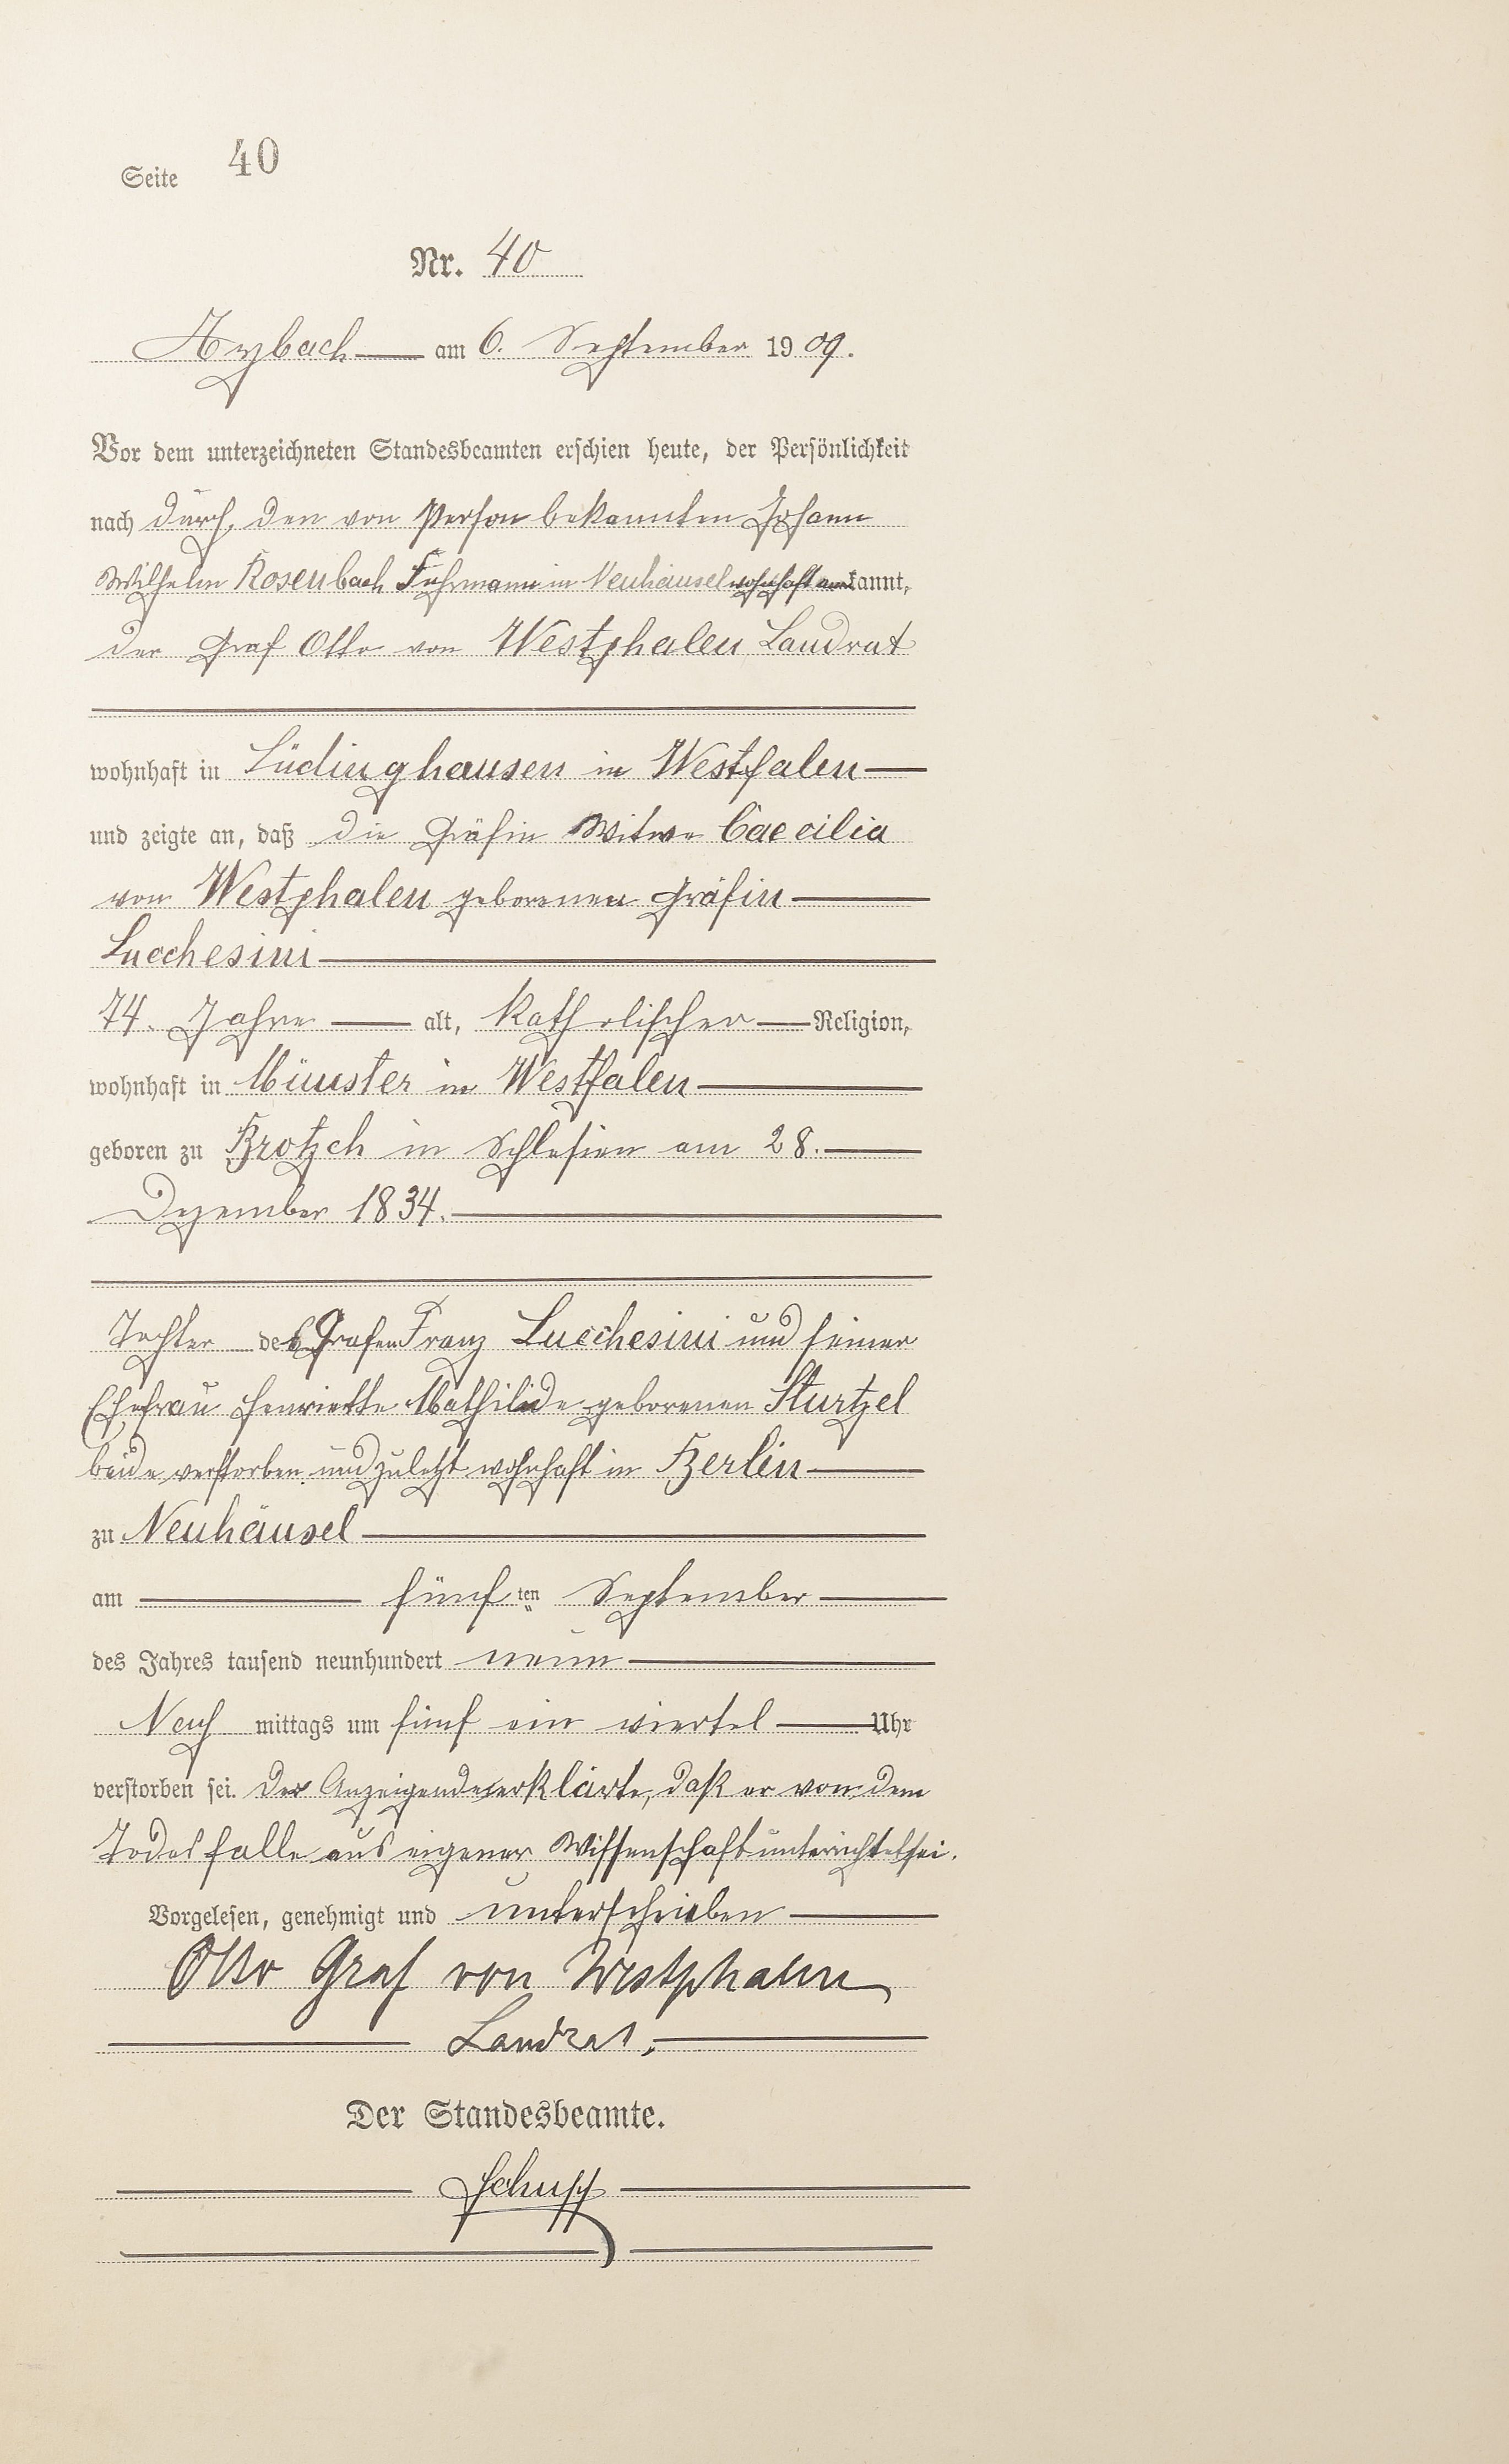 Seite 40
Nr. 40
Arzbach am 6. September 1909.
Vor dem unterzeichneten Standesbeamten erschien heute, der Persönlichkeit
nach durch den von Person bekannten Johann
Wilhelm Rosenbach Fuhrmann in Neuhäusel wohnhaft anerkannt,
der Graf Otto von Westphalen Landrat
wohnhaft in Lüdinghausen in Westfalen
und zeigte an, daß die Gräfin Witwe Caecilia
von Westphalen geborenen Gräfin
Lucchesini
74. Jahre alt, Katholischer Religion,
wohnhaft in Münster in Westfalen
geboren zu in Schlesien am 28.
Dezember 1834.
Tochter des Grafen Franz Lucchesini und seiner
Ehefrau Henriette Mathilde geborenen Sturtzel
beide verstorben und zuletzt wohnhaft in Berlin
zu Neuhäusel
am fünften September
des Jahres tausend neunhundert neun
Nach mittags um fünf ein viertel Uhr
verstorben sei. Der Anzeigende erklärte, daß er von dem
Todesfalle aus eigener Wissenschaft unterrichtet sei.
Vorgelesen, genehmigt und unterschrieben
Otto Graf von Westphalen
Landrat.
Der Standesbeamte.
Schupp